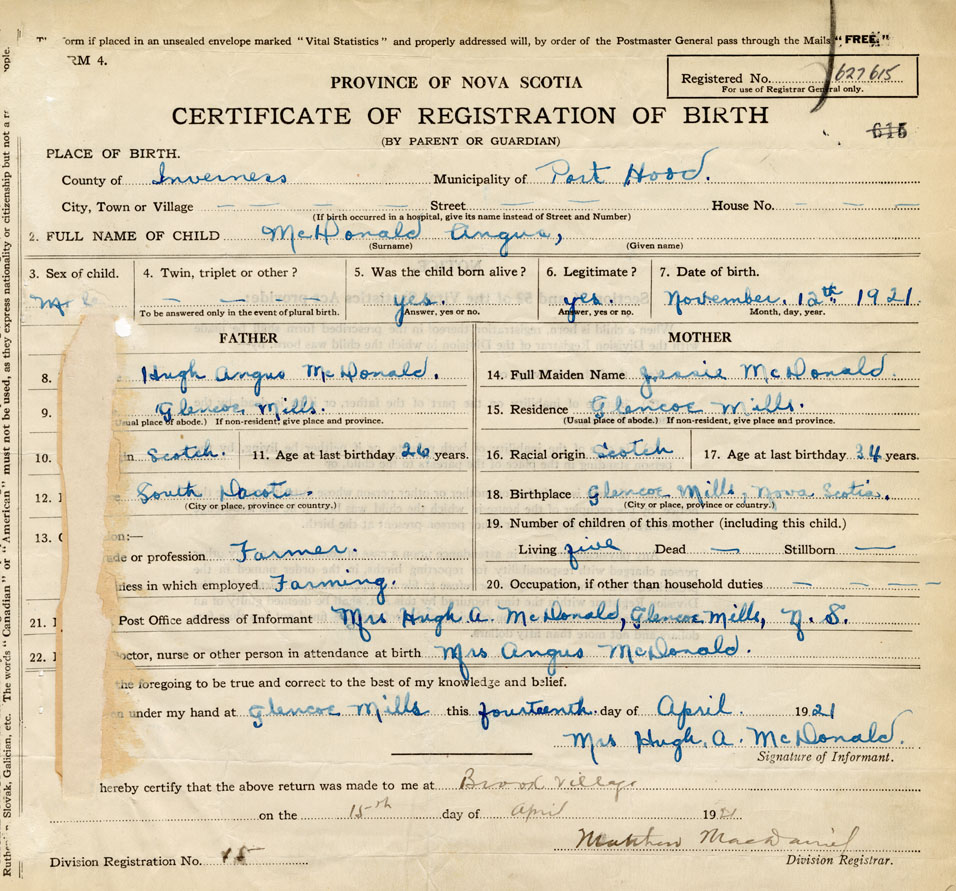 orm if placed in an unsealed envelope marked "Vital Statistics" and properly addressed will, by order of the Postmaster General pass through the Mails "FREE."
RM 4.
PROVINCE OF NOVA SCOTIA
Registered No. 627615
For use of Registrar General only.
CERTIFICATE OF REGISTRATION OF BIRTH
615
(BY PARENT OR GUARDIAN)
PLACE OF BIRTH.
County of Inverness Municipality of Port Hood.
City, Town or Village — — — — — Street — — House No. — — —
(If birth occurred in a hospital, give its name instead of Street and Number)
2. FULL NAME OF CHILD McDonald Angus,
(Surname) (Given name)
3. Sex of child. 4. Twin, triplet or other? 5. Was the child born alive? 6. Legitimate? 7. Date of birth.
— — — — yes. yes. November. 12th 1921
To be answered only in the event of plural birth. Answer, yes or no. Answer, yes or no. Month, day, year.
FATHER MOTHER
8. Hugh Angus McDonald. 14. Full Maiden Name Jessie McDonald
9. Glencoe Mills. 15. Residence Glencoe Mills.
Usual place of abode.) If non-resident, give place and province. (Usual place of abode.) If non-resident, give place and province.
10. in Scotch. 11. Age at last birthday 26 years. 16. Racial origin Scotch 17. Age at last birthday 34 years.
12. South Dacota. 18. Birthplace Glencoe Mills, Nova Scotia.
(City or place, province or country.) (City or place, province or country.)
13. ion:— 19. Number of children of this mother (including this child.)
de or profession Farmer. Living five Dead — Stillborn —
ness in which employed Farming. 20. Occupation, if other than household duties — — — —
21. Post Office address of Informant Mrs Hugh A. McDonald, Glencoe Mills, N. S.
22. octor, nurse or other person in attendance at birth Mrs Angus McDonald.
the foregoing to be true and correct to the best of my knowledge and belief.
en under my hand at Glencoe Mills this fourteenth. day of April. 1921
Mrs Hugh. A. McDonald.
Signature of Informant.
hereby certify that the above return was made to me at Brook Village
on the 15th day of April 1921
Matthew MacDaniel
Division Registration No. 15 Division Registrar.
Slovak, Galician, etc. The words "Canadian" or "American" must not be used, as they express nationality or citizenship but not a r